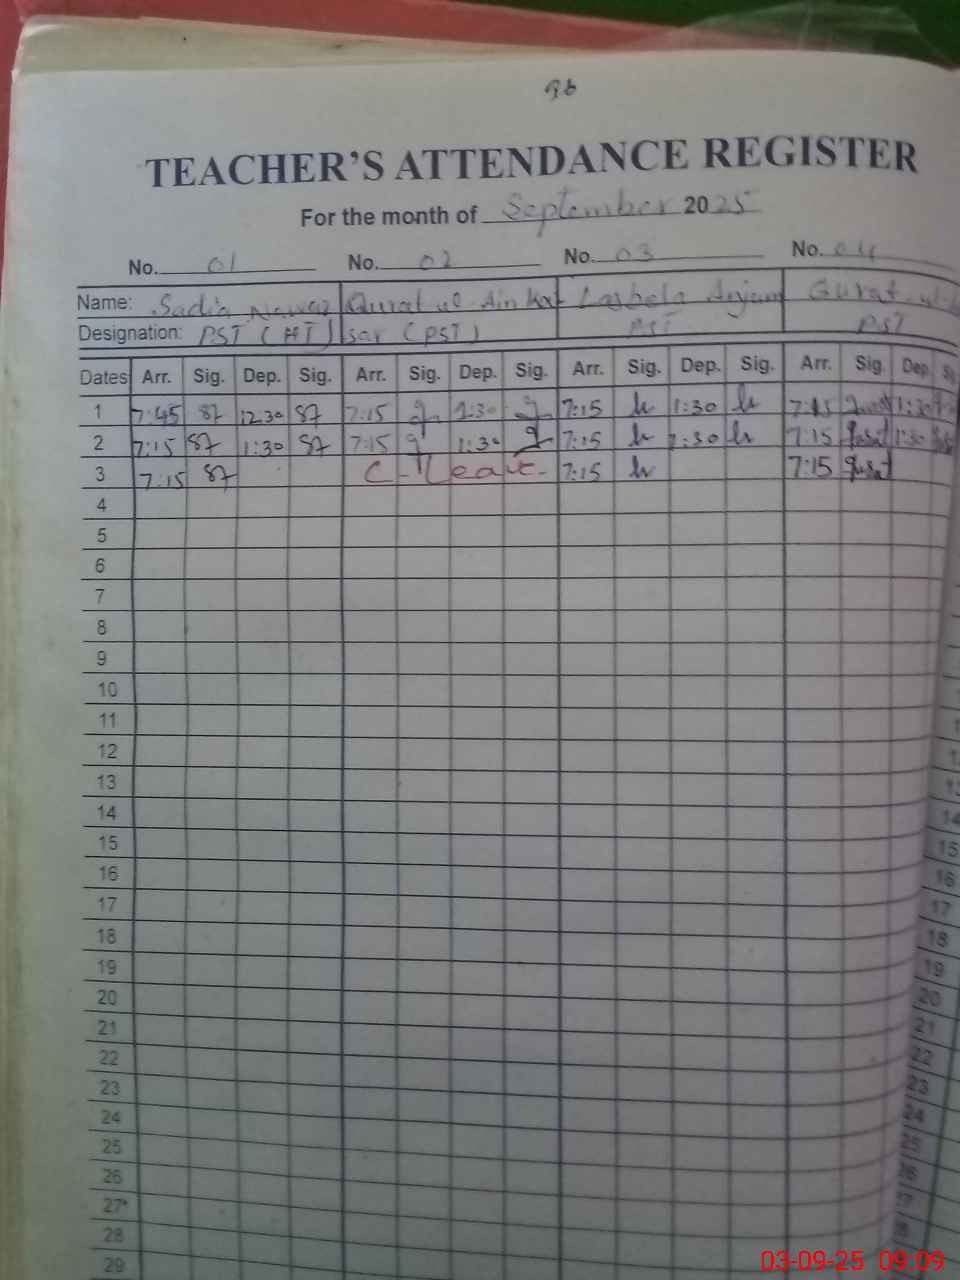 96
TEACHER'S ATTENDANCE REGISTER
For the month of September 2025
No. 01 No. 02 No. 03 No. 04
Name: Sadia Nawaz Qurat ul Ain Kau Lasbela Anjum Qurat-ul-
Designation: PST (HT) sar (PST) PST PST
Dates Arr. Sig. Dep. Sig. Arr. Sig. Dep. Sig. Arr. Sig. Dep. Sig. Arr. Sig. Dep. Si
1 7:45 12:30 7:15 1:30 7:15 1:30 7:15 1:30
2 7:15 1:30 7:15 1:30 7:15 1:30 7:15 1:30
3 7:15 C-Leave- 7:15 7:15
4
5
6
7
8
9
10
11
12
13
14
15
16
17
18
19
20
21
22
23
24
25
26
27
28
29
03-09-25 09:09